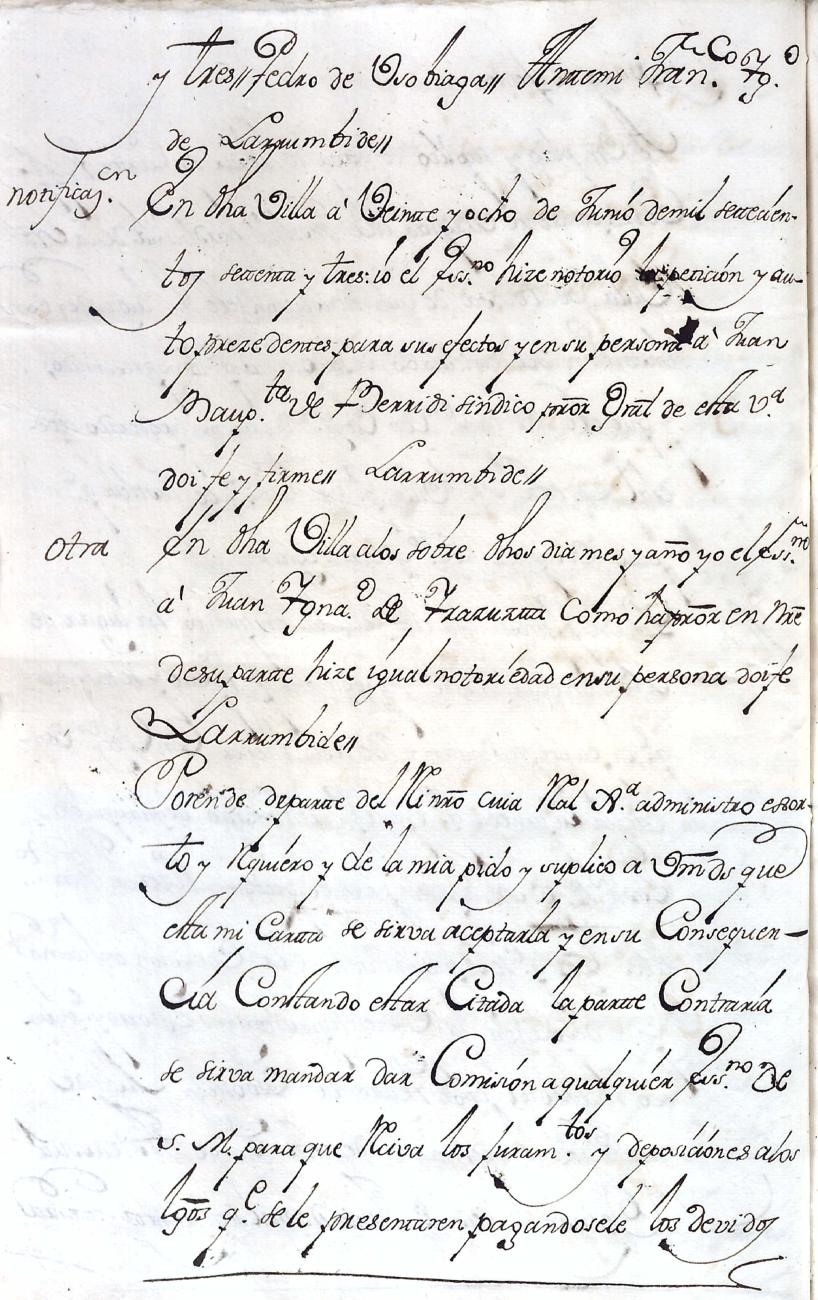 y tres// Pedro de Usobiaga// Antemi Fran.co Yg.o
de Larrumbide//
notificaz.on
En dha Villa à Veintte y ocho de Junió de mil settecien-
tos settenta y tres: ió el Ess.no hize notorio la petición y au-
to prezedentes para sus efectos y en su persona à Juan
Baup.ta de Berridi sindico pror Gral de esta V.a
doi fe y firme// Larrumbide//
Otra
En dha Villa a los sobre dhos dia mes y año yo el Ess.no
à Juan Ygna.o de Yrazuzta Como ha pror en Nre
de su partte hize igual nottoriedad en su persona doi fe
Larrumbide//
Porende de partte del Rl nro cuia Ral A.a administro esor-
to y Rquiero y de la mia pido y suplico a Vmds que
esta mi Cartta se sirva aceptarla y en su Consequen-
cia Constando esttar Citada la partte Contraria
se sirva mandar dar Comisión a qualquiér Ess.no Rl de
S. M. para que Rciva los Juram.tos y deposiciónes a los
tgos q.e se le presentaren pagandosele los devidos